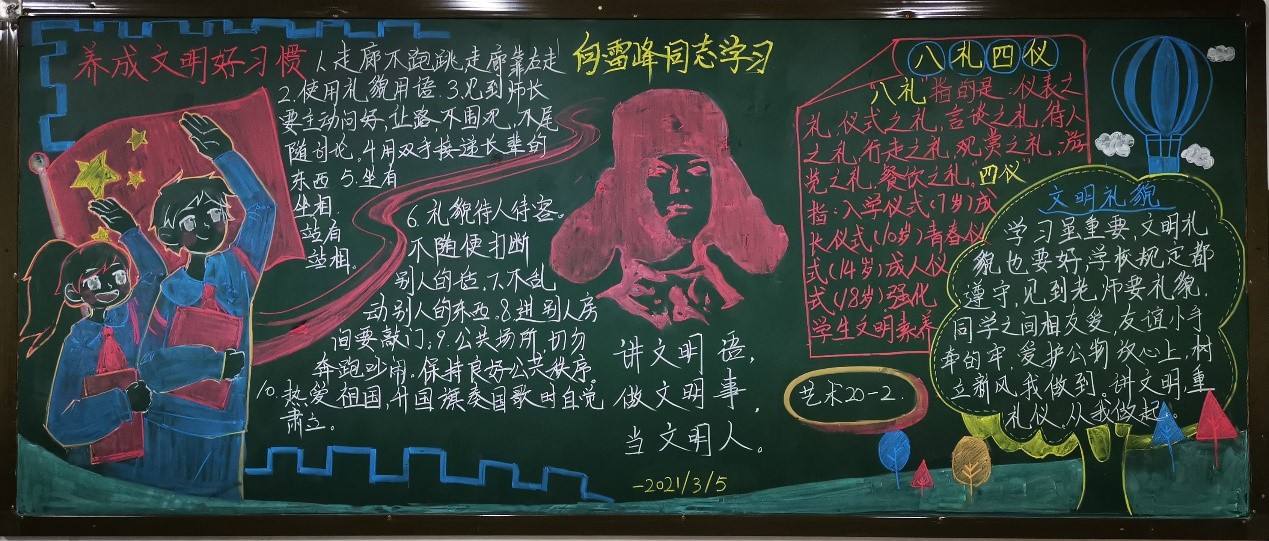 养成文明好习惯
1.走廊不跑跳,走廊靠左走
2.使用礼貌用语.3.见到师长
要主动问好,让路,不围观,不尾
随讨论。4.用双手接递长辈的
东西 5.坐有
坐相,
站有
站相。
6.礼貌待人待客。
不随便打断
别人的话,7.不乱
动别人的东西。8.进别人房
间要敲门;9.公共场所,切勿
奔跑吵闹。保持良好公共秩序
10.热爱祖国,升国旗奏国歌时自觉
肃立。
向雷峰同志学习
讲文明语,
做文明事,
当文明人。
-2021/3/5
八礼四仪
“八礼”指的是:仪表之
礼,仪式之礼,言谈之礼,待人
之礼,行走之礼,观赏之礼,游
览之礼,餐饮之礼。“四仪”
指:入学仪式(7岁)成
长仪式(10岁)青春仪
式(14岁)成人仪
式(18岁).强化
学生文明素养
艺术20-2.
文明礼貌
学习虽重要,文明礼
貌也要好,学校规定都
遵守,见到老师要礼貌.
同学之间相友爱,友谊小手
牵的牢,爱护公物放心上,树
立新风我做到。讲文明,重
礼仪,从我做起。